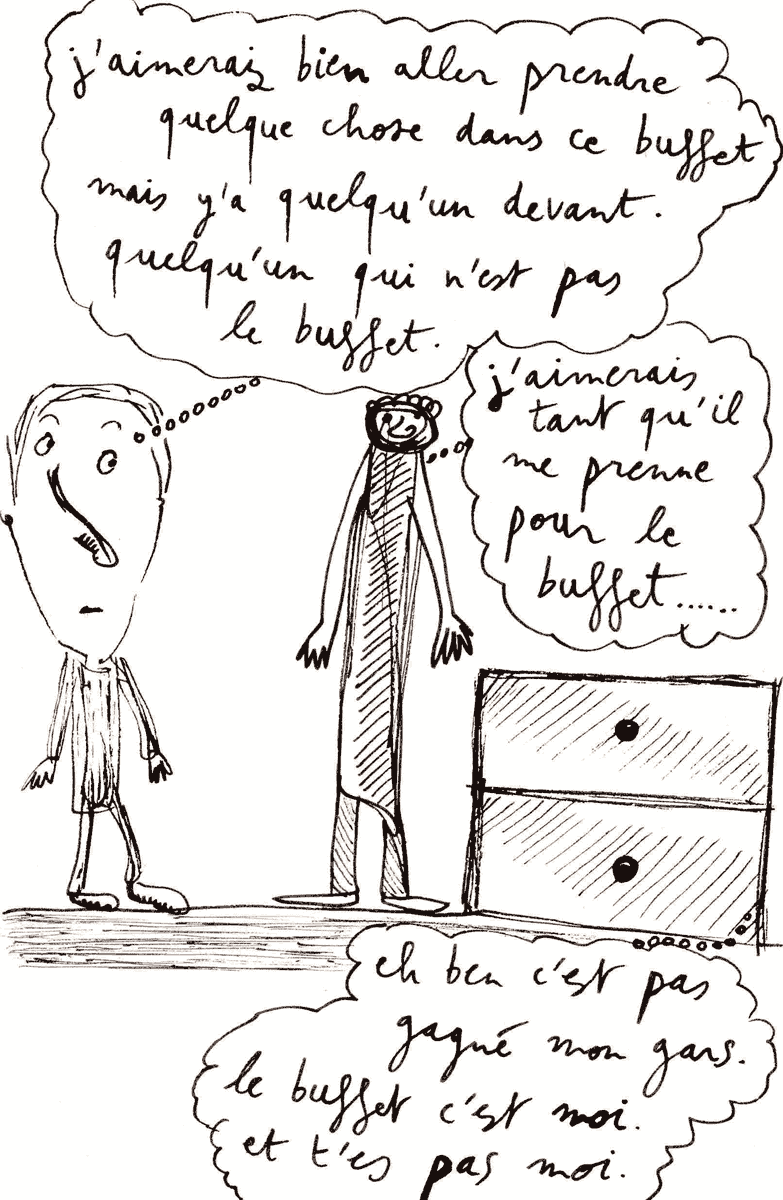 j'aimerais bien aller prendre
quelque chose dans ce buffet
mais y'a quelqu'un devant.
quelqu'un qui n'est pas
le buffet.
j'aimerais
tant qu'il
me prenne
pour le
buffet......
eh ben c'est pas
gagné mon gars.
le buffet c'est moi.
et t'es pas moi.